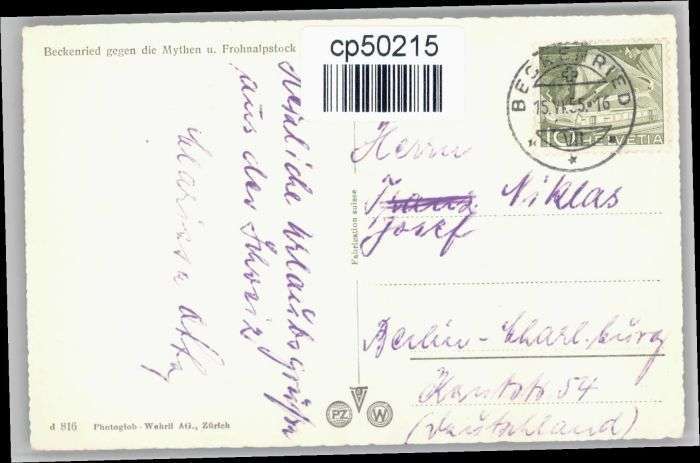 Beckenried gegen die Mythen u. Frohnalpstock
cp50215
Herzliche Urlaubsgrüße
aus der Schweiz
Fabrication suisse
BECKENRIED
15.VI.55.-16
HELVETIA
Herrn
Franz Niklas
Josef
Berlin-Charl.burg
Kantstr. 54
(Deutschland)
PZ
W
d 816 Photoglob-Wehrli AG., Zürich